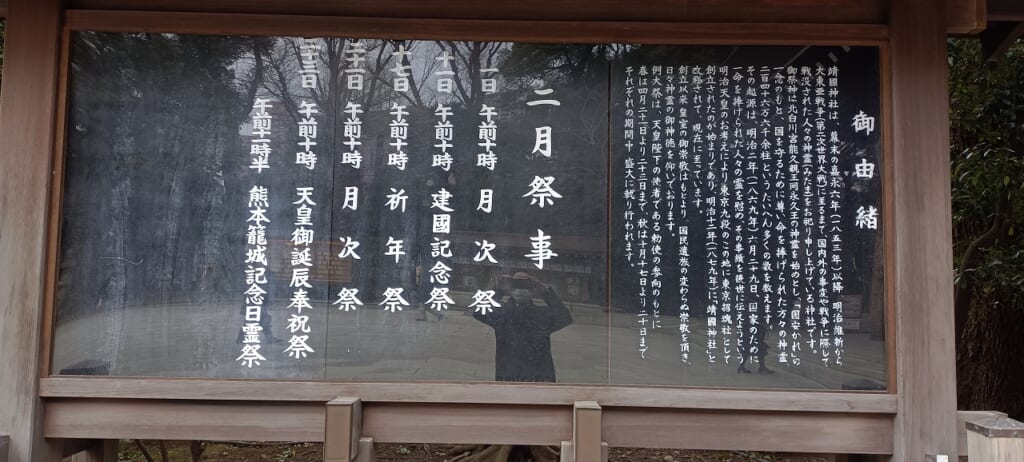 御由緒
靖國神社は、幕末の嘉永六年(一八五三年)以降、明治維新から
大東亜戦争(第二次世界大戦)に至るまで、国内外の事変や戦争に際して
戦没された人々の神霊(みたま)をお祀り申し上げている神社です。
御祭神は北白川宮能久親王同永久王の神霊を始めとし「国安かれ」の
一念のもと、国を守るために尊い命を捧げられた方々の神霊
二百四十六万六千余柱というたいへん多くの数を数えます。
その起源は、明治二年(一八六九年)六月二十九日、国家のために
一命を捧げられた人々の霊を慰め、その事績を後世に伝えようという
明治天皇のお考えにより東京九段のこの地に東京招魂社として
創立されたのが始まりであり、明治十二年(一八七九年)に「靖國神社」と
改称されて、現在に至っています。
創立以来皇室の御崇敬はもとより、国民遺族の変わらぬ崇敬を頂き、
日々神霊の御神徳を仰いでおります。
例大祭は、天皇陛下の御使者である勅使の参向のもとに
春は四月二十一日より二十三日まで、秋は十月十七日より二十日まで
それぞれの期間中、盛大に執り行われます。
二月祭事
一日 午前十時 月次祭
十一日 午前十時 建國記念祭
十七日 午前十時 祈年祭
二十一日 午前十時 月次祭
二十三日 午前十時 天皇御誕辰奉祝祭
午前十一時半 熊本籠城記念日霊祭